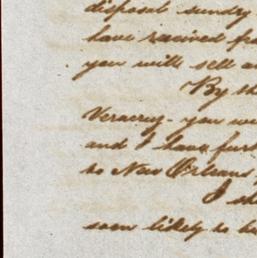 disposal sundry
have received fro
you will sell an
By th
Veracruz - you wi
and I have furt
to New Orleans
I sh
soon likely to be